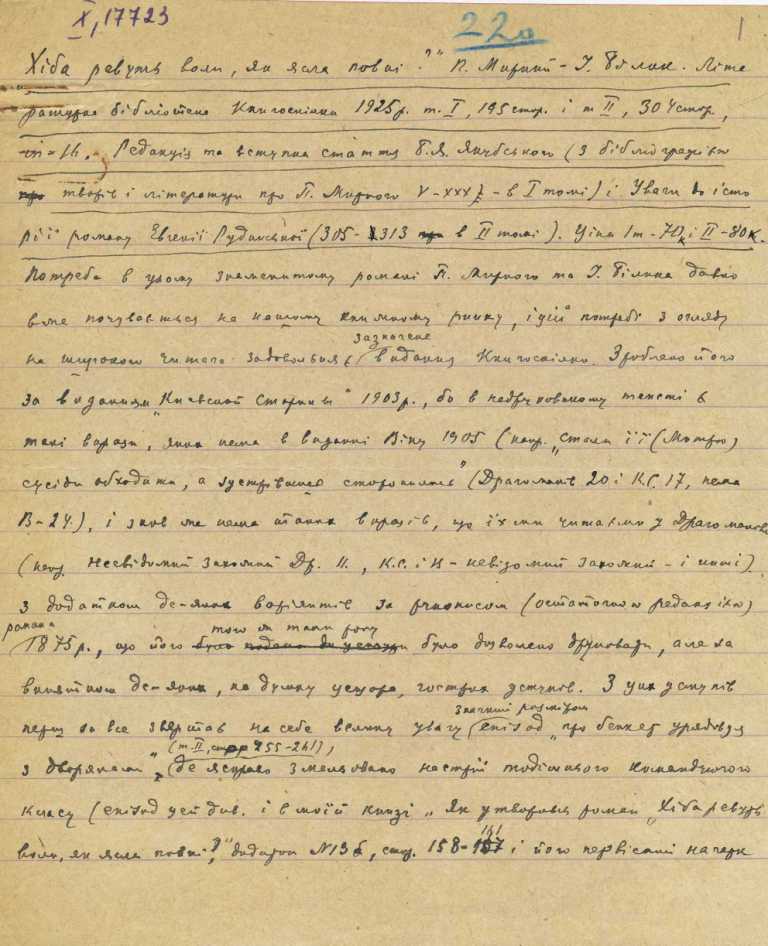 X, 17723
220
1
Хіба ревуть воли, як ясла повні?" П. Мирний – І. Білик. Літе
ратурна бібліотека Книгоспілки 1925 р. т. I, 195 стор. і т II, 304 стор.,
Редакція та вступна стаття Б. Я. Якубського (з бібліографією
про творів і літератури про П. Мирного V–XXX – в I томі) і Уваги до істо
рії роману Евгенії Рудинської (305–313 в II томі). Ціна I т – 70 к і II – 80 к.
Потреба в цьому знаменитому романі П. Мирного та І. Білика давно
вже почувається на нашому книжному ринку, і цій потребі з огляду
зазначене
на широкого читача задовольня видання Книгоспілки. Зроблено його
за виданням „Киевской Старины" 1903 р., бо в надрукованому тексті є
такі вирази, яких нема в виданні Віку 1905 (напр. „Стали її (Мотрю)
сусіди обходити, а зустрівшися сторонились" (Драгоманів 20 і К.С. 17, нема
В – 24.), і знов же нема таких виразів, що їх ми читаємо у Драгоманова
(напр. Несвідомий знакомий Др. 11, К.С. і Н – невідомий знакомий – і инші)
з додатком де-яких варіянтів за рукописом (остаточною редакцією)
романа
того ж таки року
1875 р., що його було подано до цензури було дозволено друкувати, але за
винятком де-яких, на думку цензора, гострих уступів. З цих уступів
значний розміром
перш за все звертає на себе велику увагу епізод „про бенкет урядовця
(т. II, стор 255–261),
з дворянами", де яскраво змальовано настрій тодішнього командуючого
класу (епізод цей див. і в моїй книзі „Як утворивсь роман „Хіба ревуть
воли, як ясла повні?", додаток № 13б, стор. 158–161 і його первісний начерк